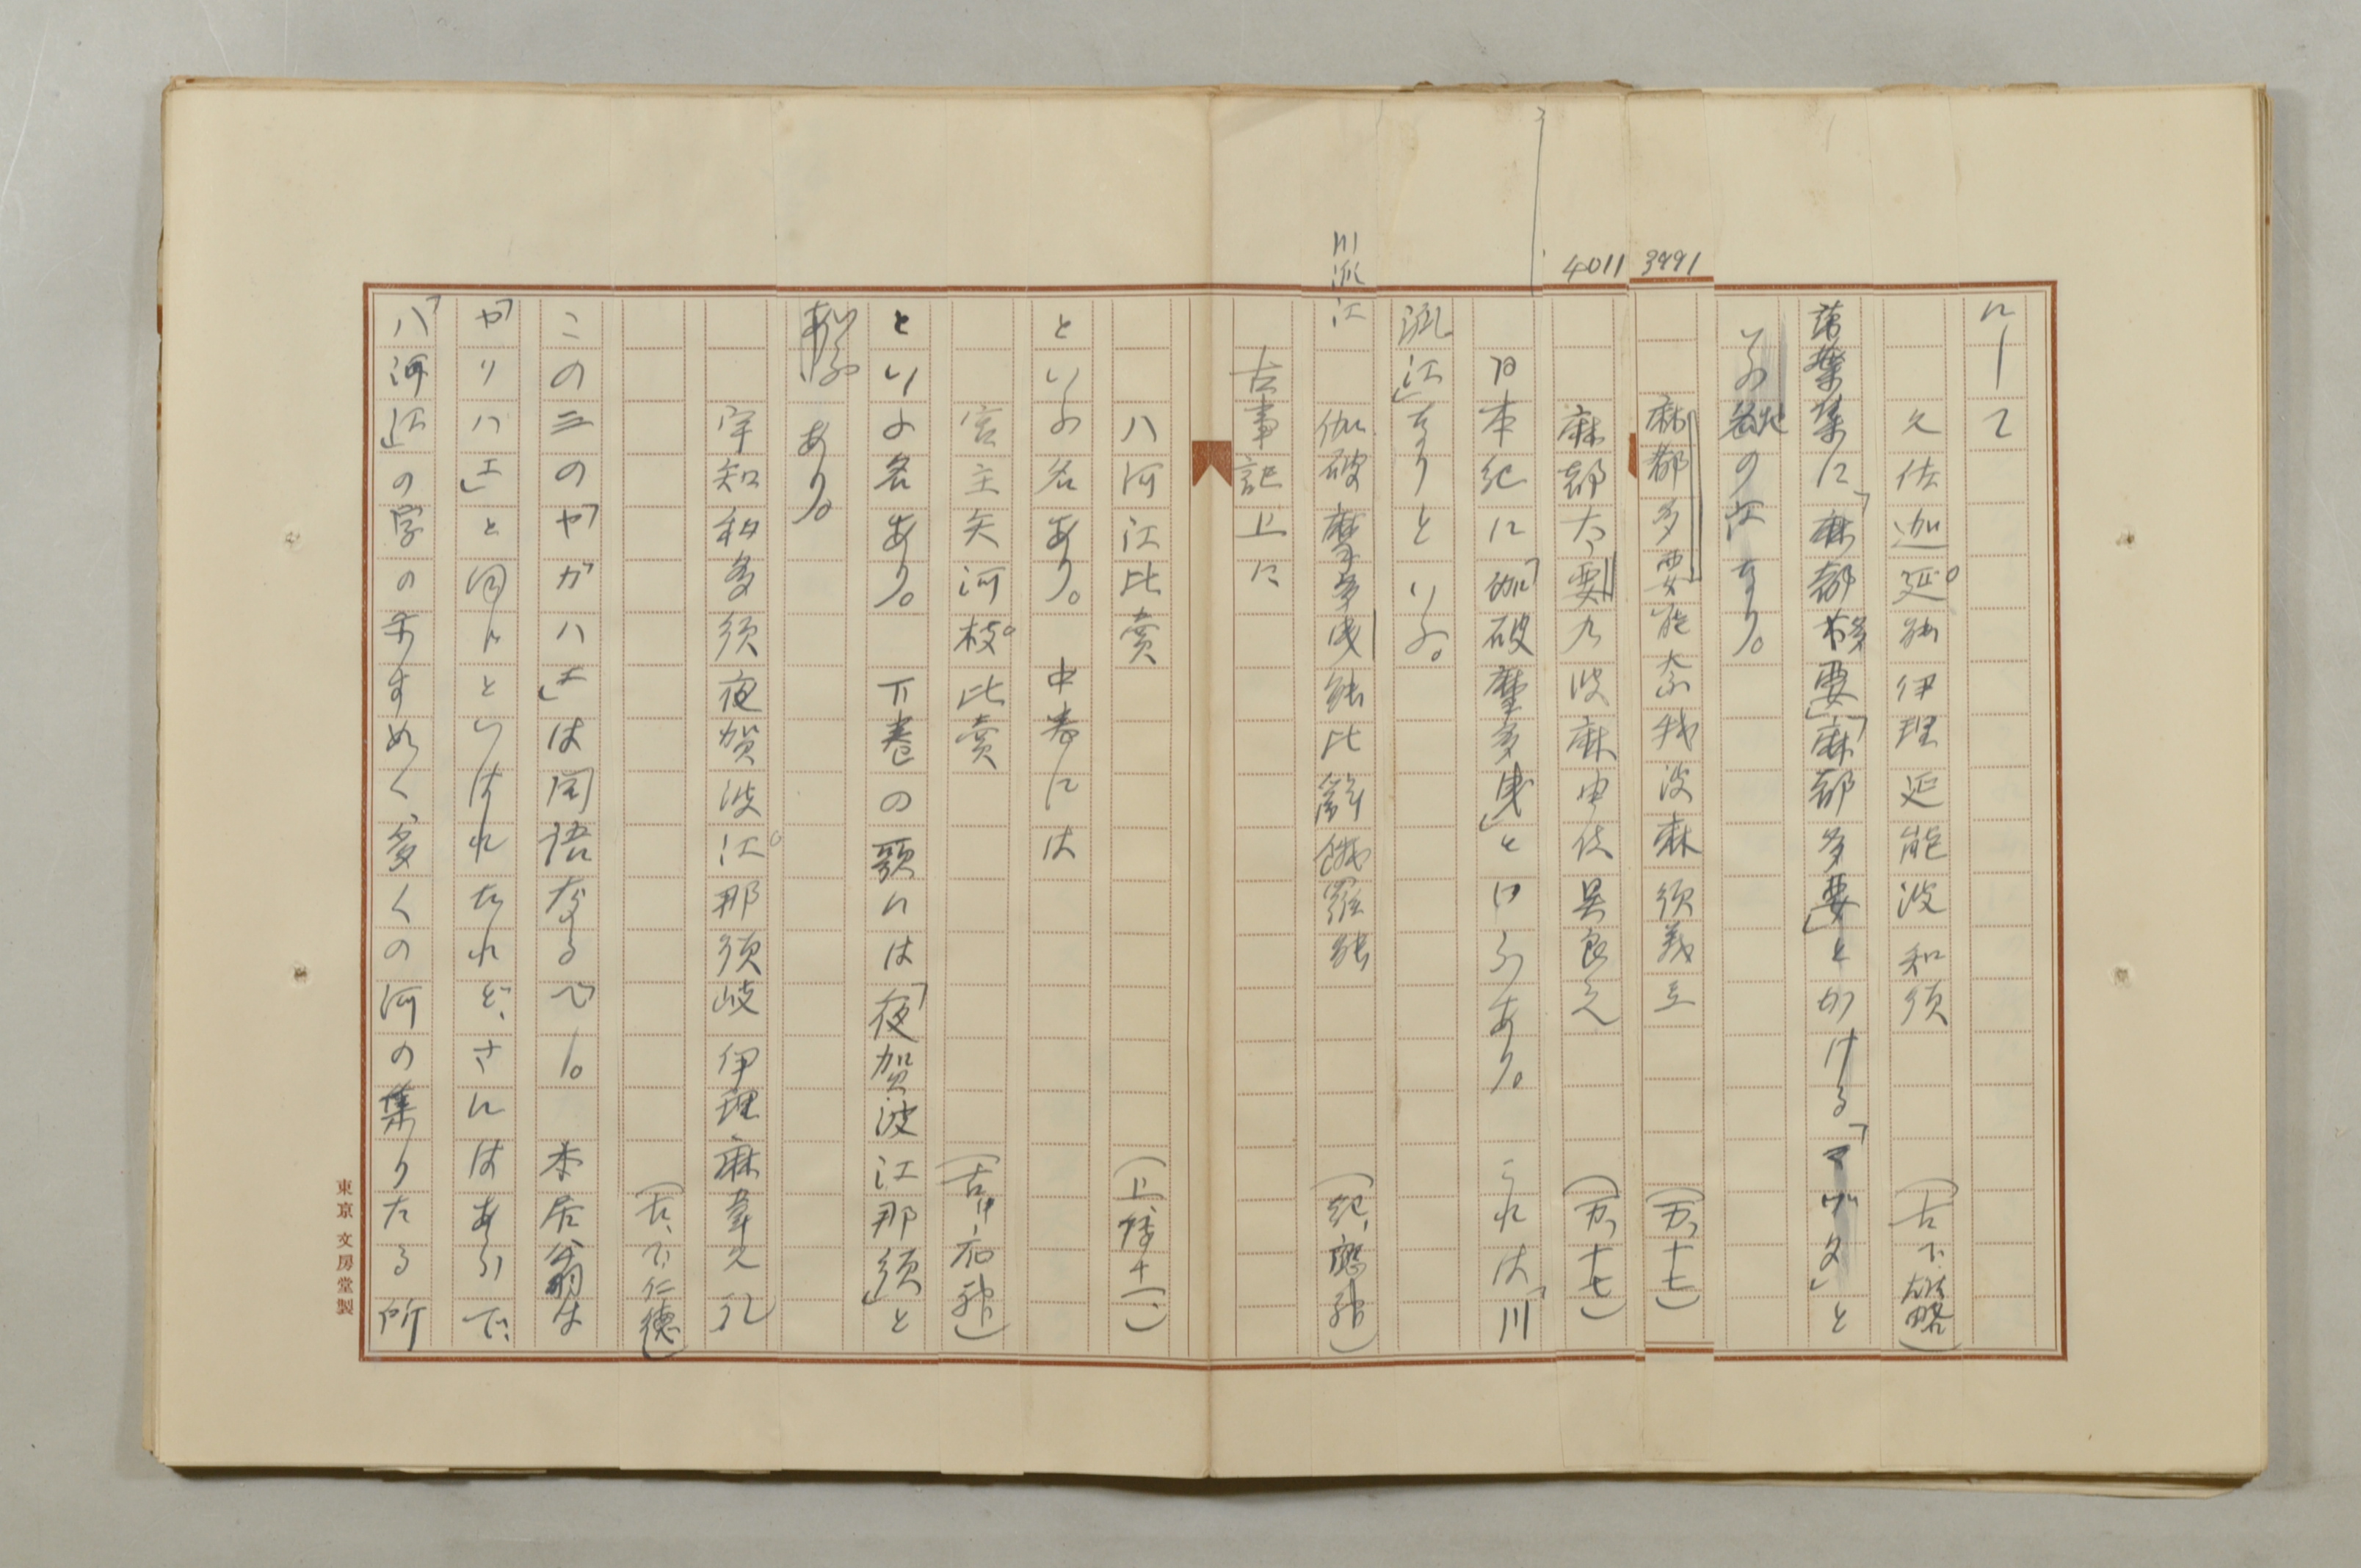 にして
久佐迦延能伊理延能波知須 (古、下、雄略)
萬葉集に「麻都多要」「麻都多要」とかける「マツダエ」と
いふ地名の江なり。
3991
麻都多要能奈我波麻須義氐 (万、十七)
4011
麻都太要乃波麻由伎具良之 (万、十七)
日本紀に「伽破摩多曳」といふあり。 これは「川
派江」なりといふ。
川派江
伽破摩多曳能比辭餓羅能 (紀、應神)
古事記上に
八河江比賣 (上、傳十一)
といふ名あり。中巻には
宮主矢河枝比賣 (古、中、應神)
といふ名あり。 下巻の歌には「夜賀波江那須」と
いふあり。
宇知和多須夜賀波江那須岐 伊理麻韋久礼
(古、下、仁徳)
この三の「ヤガハエ」は同語なるべし。 本居翁は
「ヤリハエ」と同じといはれたれど、さにはあらで、
「八河江」の字の示すめく、多くの河の集りたる所
東京 文房堂製